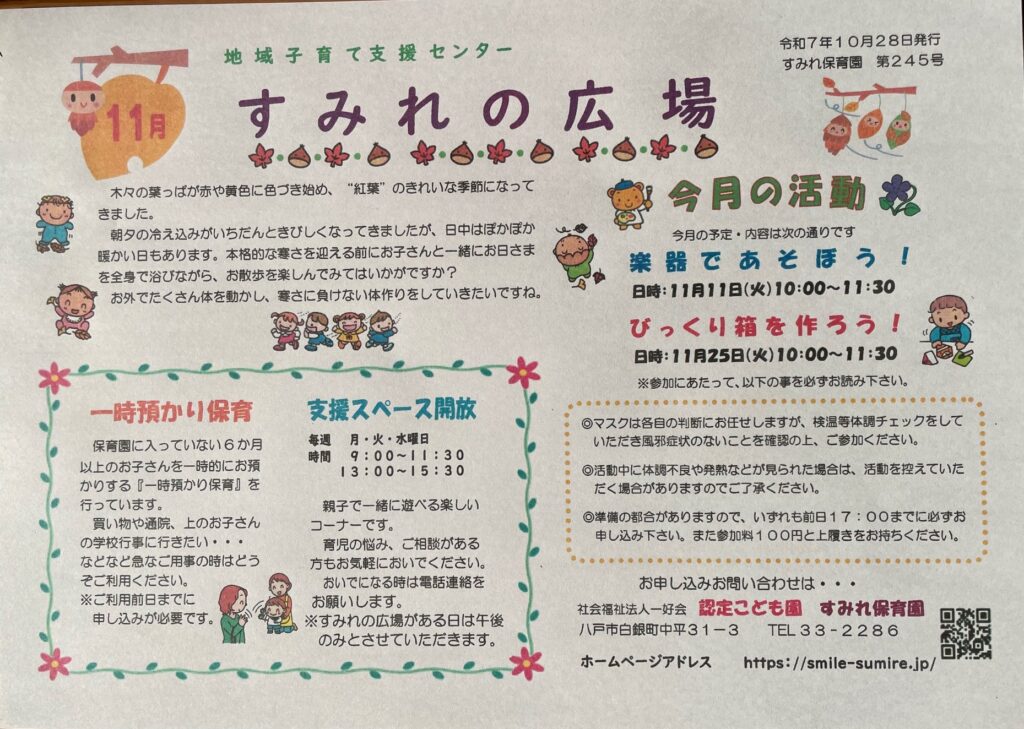 地域子育て支援センター
令和7年10月28日発行
すみれ保育園　第245号
11月
すみれの広場
木々の葉っぱが赤や黄色に色づき始め、“紅葉”のきれいな季節になって
きました。
朝夕の冷え込みがいちだんときびしくなってきましたが、日中はぽかぽか
暖かい日もあります。本格的な寒さを迎える前にお子さんと一緒にお日さま
を全身で浴びながら、お散歩を楽しんでみてはいかがですか？
お外でたくさん体を動かし、寒さに負けない体作りをしていきたいですね。
今月の活動
今月の予定・内容は次の通りです
楽器であそぼう！
日時：11月11日(火)10:00～11:30
びっくり箱を作ろう！
日時：11月25日(火)10:00～11:30
※参加にあたって、以下の事を必ずお読み下さい。
◎マスクは各自の判断にお任せしますが、検温等体調チェックをして
いただき風邪症状のないことを確認の上、ご参加ください。
◎活動中に体調不良や発熱などが見られた場合は、活動を控えていた
だく場合がありますのでご了承ください。
◎準備の都合がありますので、いずれも前日17：00までに必ずお
申し込み下さい。また参加料100円と上履きをお持ちください。
一時預かり保育
保育園に入っていない6か月
以上のお子さんを一時的にお預
かりする『一時預かり保育』を
行っています。
買い物や通院、上のお子さん
の学校行事に行きたい・・・
などなど急なご用事の時はどう
ぞご利用ください。
※ご利用前日までに
申し込みが必要です。
支援スペース開放
毎週　月・火・水曜日
時間　9：00～11：30
13：00～15：30
親子で一緒に遊べる楽しい
コーナーです。
育児の悩み、ご相談がある
方もお気軽においでください。
おいでになる時は電話連絡を
お願いします。
※すみれの広場がある日は午後
のみとさせていただきます。
お申し込みお問い合わせは・・・
社会福祉法人一好会　認定こども園　すみれ保育園
八戸市白銀町中平31－3　TEL33－2286
ホームページアドレス　https://smile-sumire.jp/